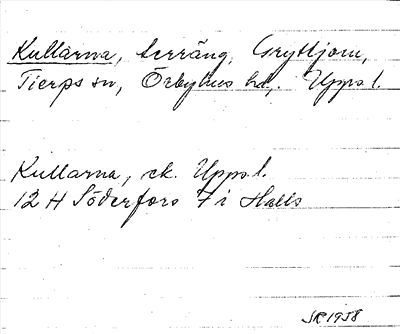 Kullarna, terräng, Gryttjom,
Tierps sn, Örbyhus hd, Upps.l.
Kullarna, ek. Upps.l.
12 H Söderfors 7 i Halls
SR 1958